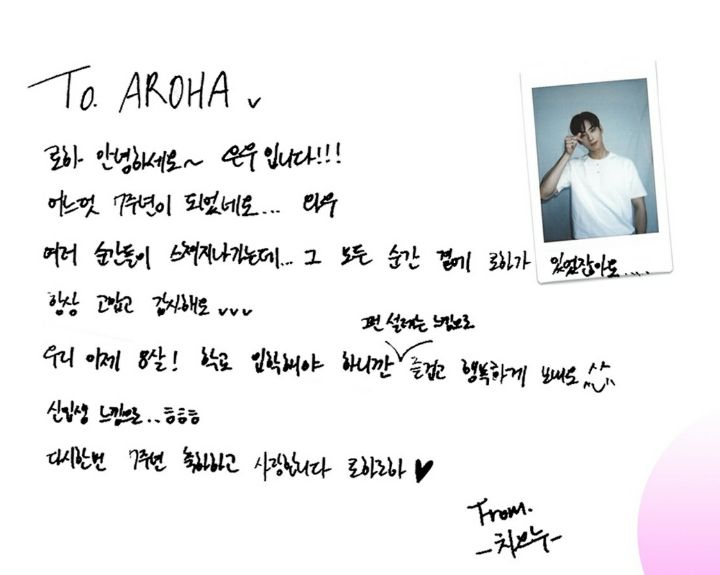 To. AROHA
로하 안녕하세요~ 은우입니다!!!
어느덧 7주년이 되었네요... 와우
여러 순간들이 스쳐지나가는데... 그 모든 순간 곁에 로하가 있었잖아요.....
항상 고맙고 감사해요
우리 이제 8살! 학교 입학해야 하니깐 즐겁고 행복하게 보내요
설레는 느낌으로
신입생 느낌으로.. ㅎㅎㅎ
다시한번 7주년 축하하고 사랑합니다 로하로하 ♥
From.